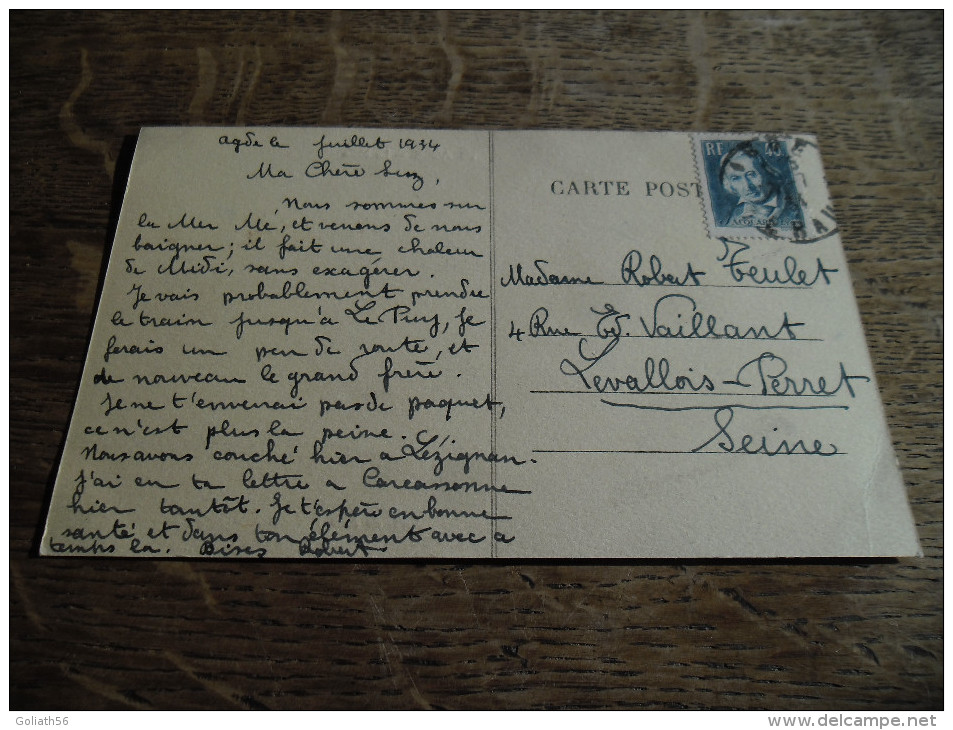 Agde le juillet 1934
Ma Chère Suz,
Nous sommes sur
la Mer Mé, et venons de nous
baigner; il fait une chaleur
de Midi, sans exagérer.
Je vais probablement prendre
le train jusqu'à Le Puy, je
ferais un peu de route, et
de nouveau le grand frère.
Je ne t'enverrai pas de paquet,
ce n'est plus la peine.
Nous avons couché hier à Lézignan.
J'ai eu ta lettre à Carcassonne
hier tantôt. Je t'espère en bonne
santé et dans ton élément avec ce
temps là. Bises Robert
CARTE POST
RF 40
JACQUARD
Madame Robert Teulet
4 Rue Ed. Vaillant
Levallois-Perret
Seine
Goliath56
www.delcampe.net